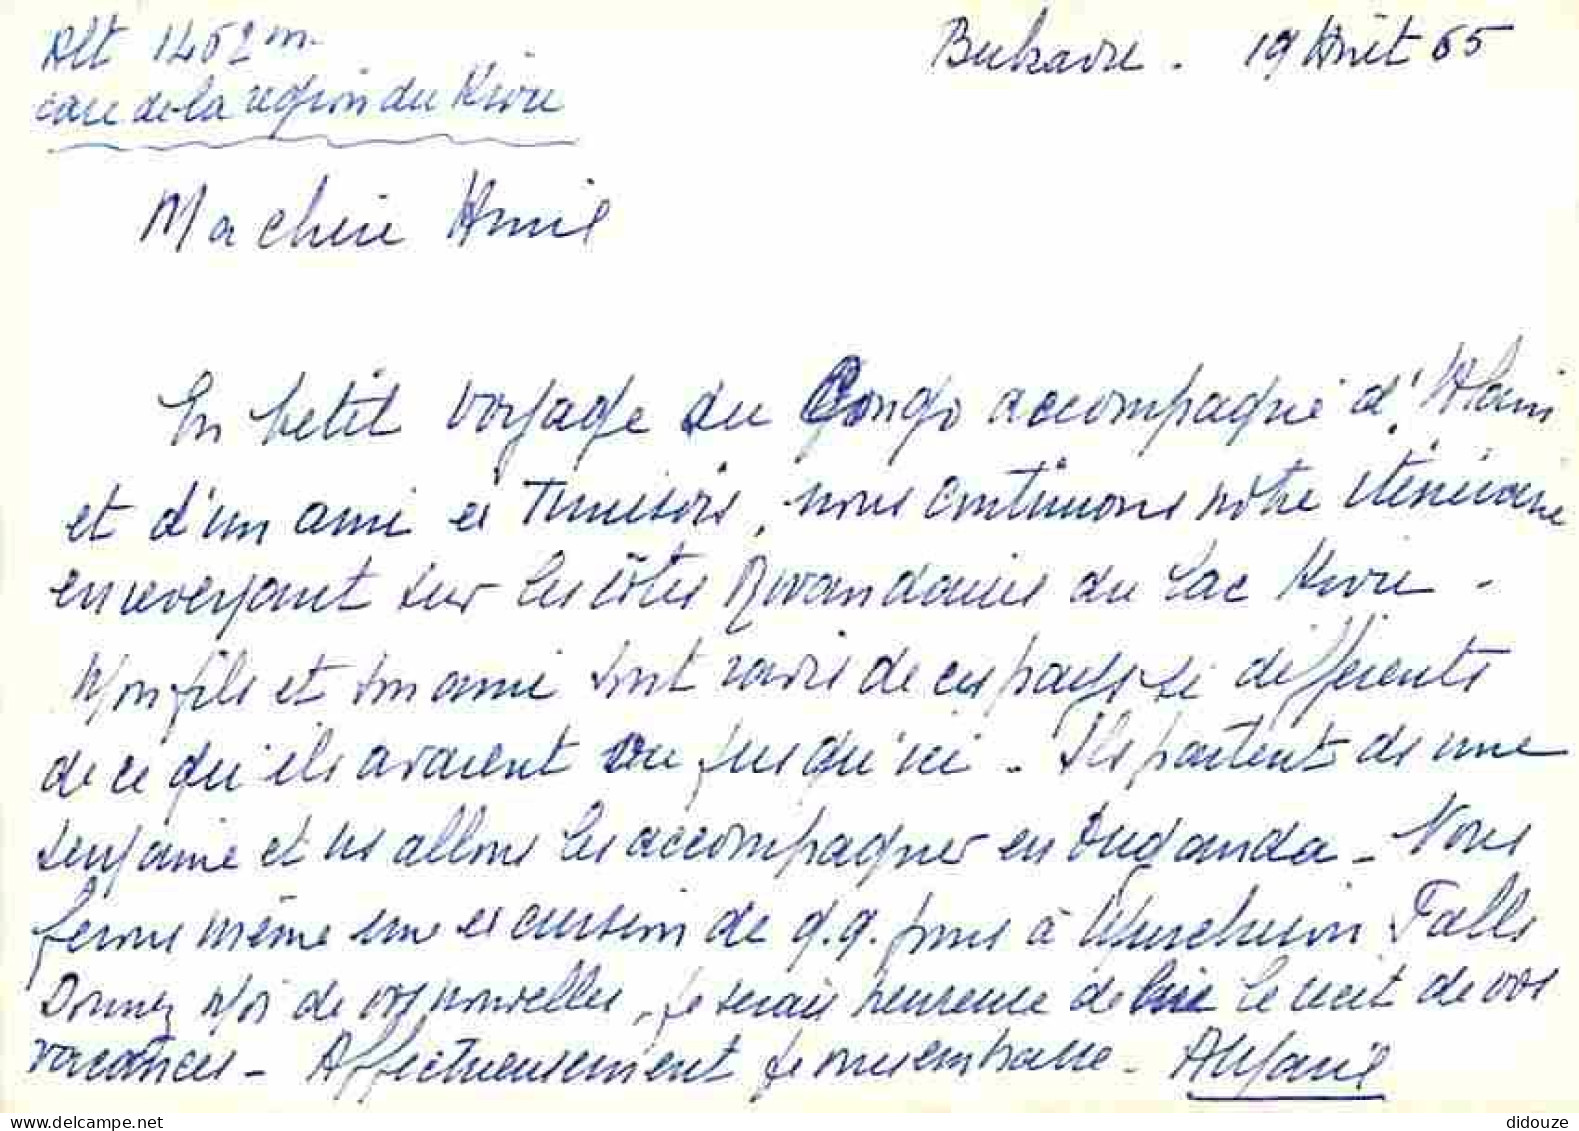 Alt 1462 m
de la région du Kivu
Bukavu. 19 Août 65
Ma chère
Un petit voyage du Congo accompagné d'Alain
et d'un ami et Tunisois, nous continuons notre itinéraire
en revenant sur les côtes Rwandaises du Lac Kivu -
Mon fils et son ami sont ravis de ces pays si différents
de ce qu'ils avaient vu jusqu'ici. Ils partent ds une
semaine et ns allons les accompagner en Ouganda - Nous
ferons même une excursion de q.q. jours à Murchison Falls
Donnez moi de vos nouvelles, je serais heureuse de lire le récit de vos
vacances - Affectueusement je vous embrasse -
didouze